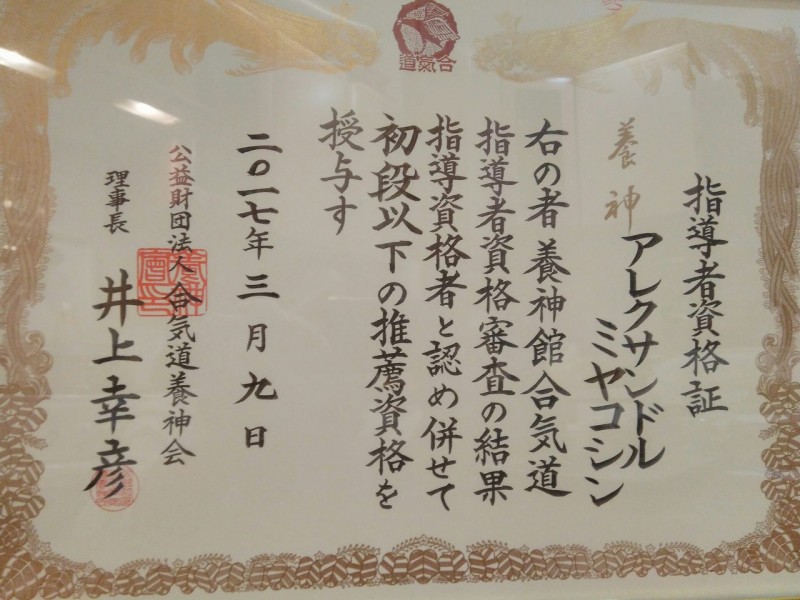 合氣道
指導者資格証
養神
アレクサンドル
ミヤコシン
右の者養神館合気道
指導者資格審査の結果
指導資格者と認め併せて
初段以下の推薦資格を
授与す
二〇一七年三月九日
公益財団法人合気道養神会
理事長 井上幸彦